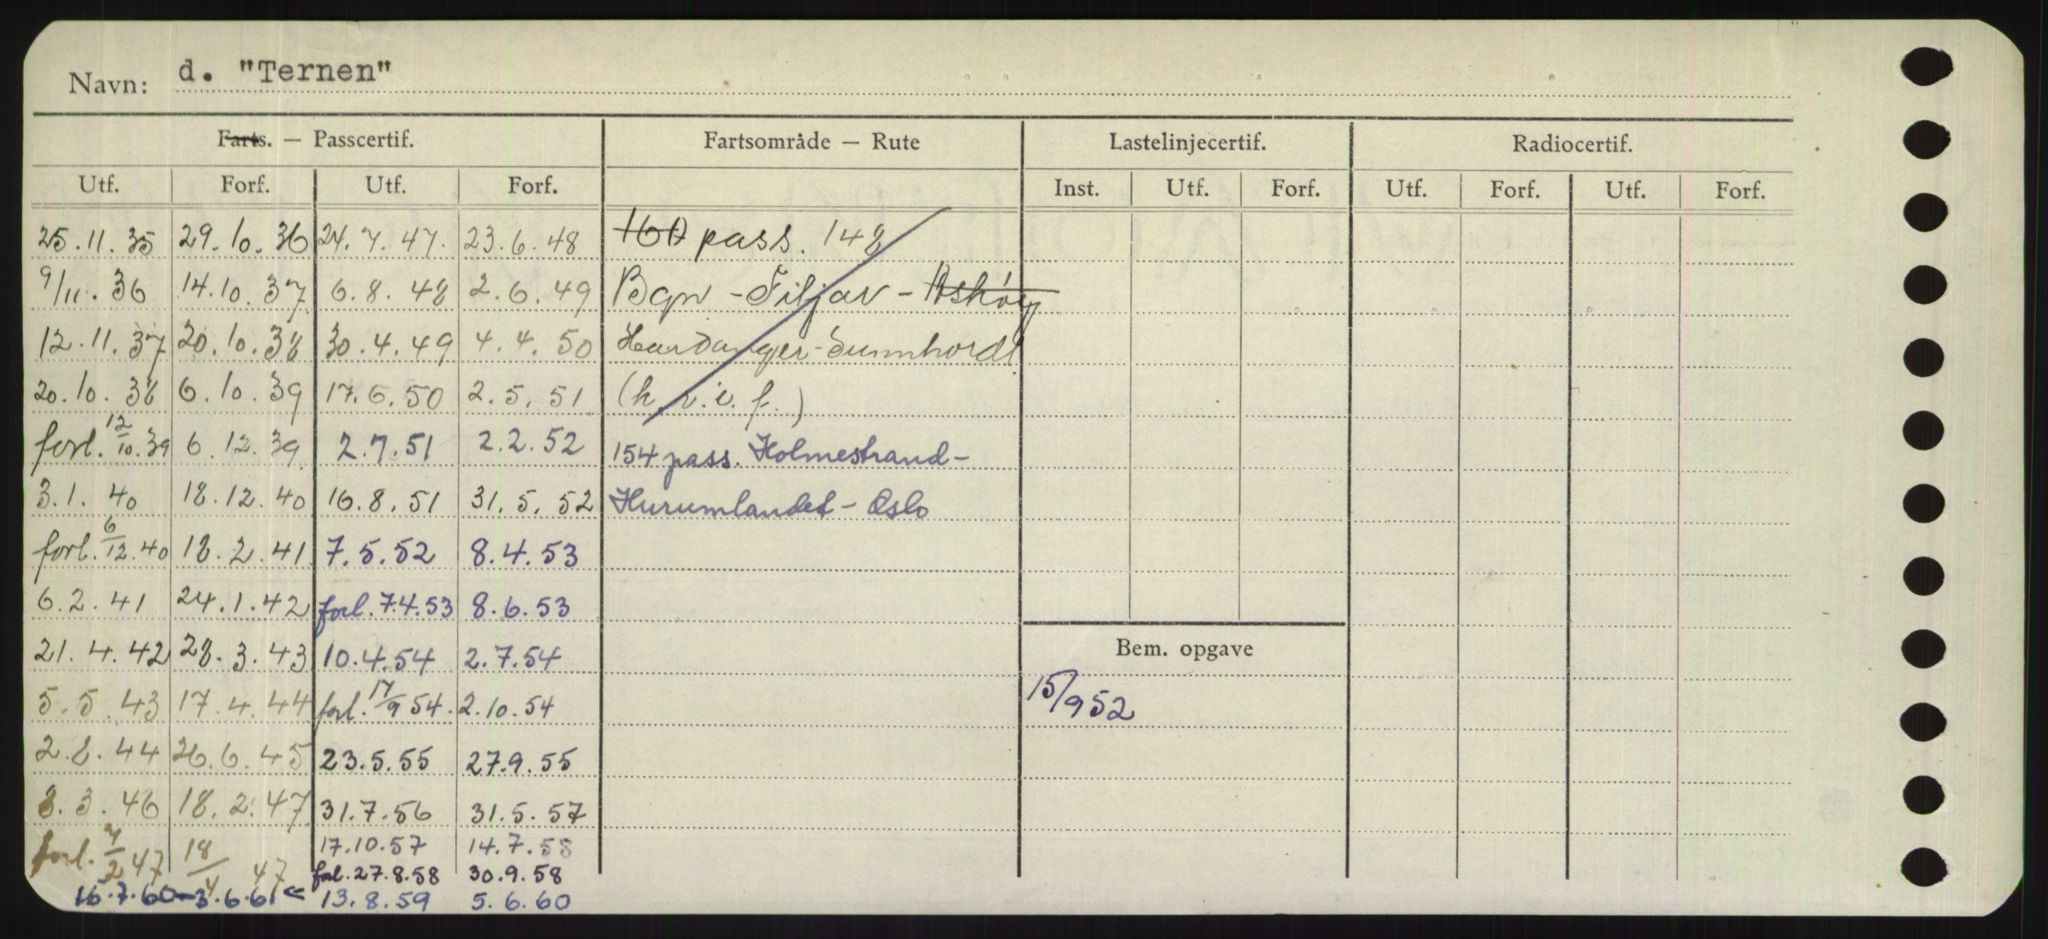 Navn: d. "Ternen"
Farts. — Passcertif. Fartsområde — Rute Lastelinjecertif. Radiocertif.
Utf. Forf. Utf. Forf. Inst. Utf. Forf. Utf. Forf. Utf. Forf.
25.11.35 29.10.36 24.7.47. 23.6.48 160 pass. 148
9/11.36 14.10.37 6.8.48 2.6.49 Bgn - Tiljar - Askøy
12.11.37 20.10.38 30.4.49 4.4.50 Hardanger-Sunnhordl
20.10.38 6.10.39 17.6.50 2.5.51 (h.r.i.f.)
forl. 12/10.39 6.12.39 2.7.51 2.2.52 154 pass. Holmestrand-
3.1.40 18.12.40 16.8.51 31.5.52 Hurumlandet - Oslo
forl. 6/12.40 18.2.41 7.5.52 8.4.53
6.2.41 24.1.42 forl. 7.4.53 8.6.53
21.4.42 28.3.43 10.4.54 2.7.54 Bem. opgave
5.5.43 17.4.44 forl. 17/9 54. 2.10.54 15/9 52
2.8.44 26.6.45 23.5.55 27.9.55
8.3.46 18.2.47 31.7.56 31.5.57
forl. 7/2 47 18/4 47 17.10.57 14.7.58
forl. 27.8.58 30.9.58
16.7.60-3.6.61 < 13.8.59 5.6.60